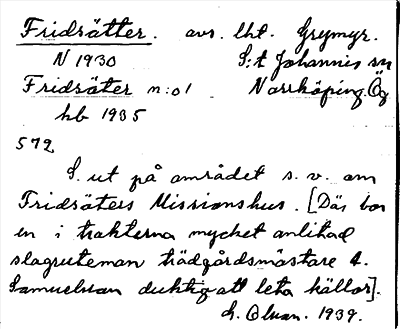 Fridsätter. avs. lht. Grymyr.
N 1930 S:t Johannis sn
Fridsäter n:o 1 Norrköping Ög
hb 1935
572
S. ut på området s.v. om
Fridsäters Missionshus. [Där bor
en i trakterna mycket anlitad
slagruteman trädgårdsmästare A.
Samuelsson duktig att leta källor].
L. Olsson. 1939.